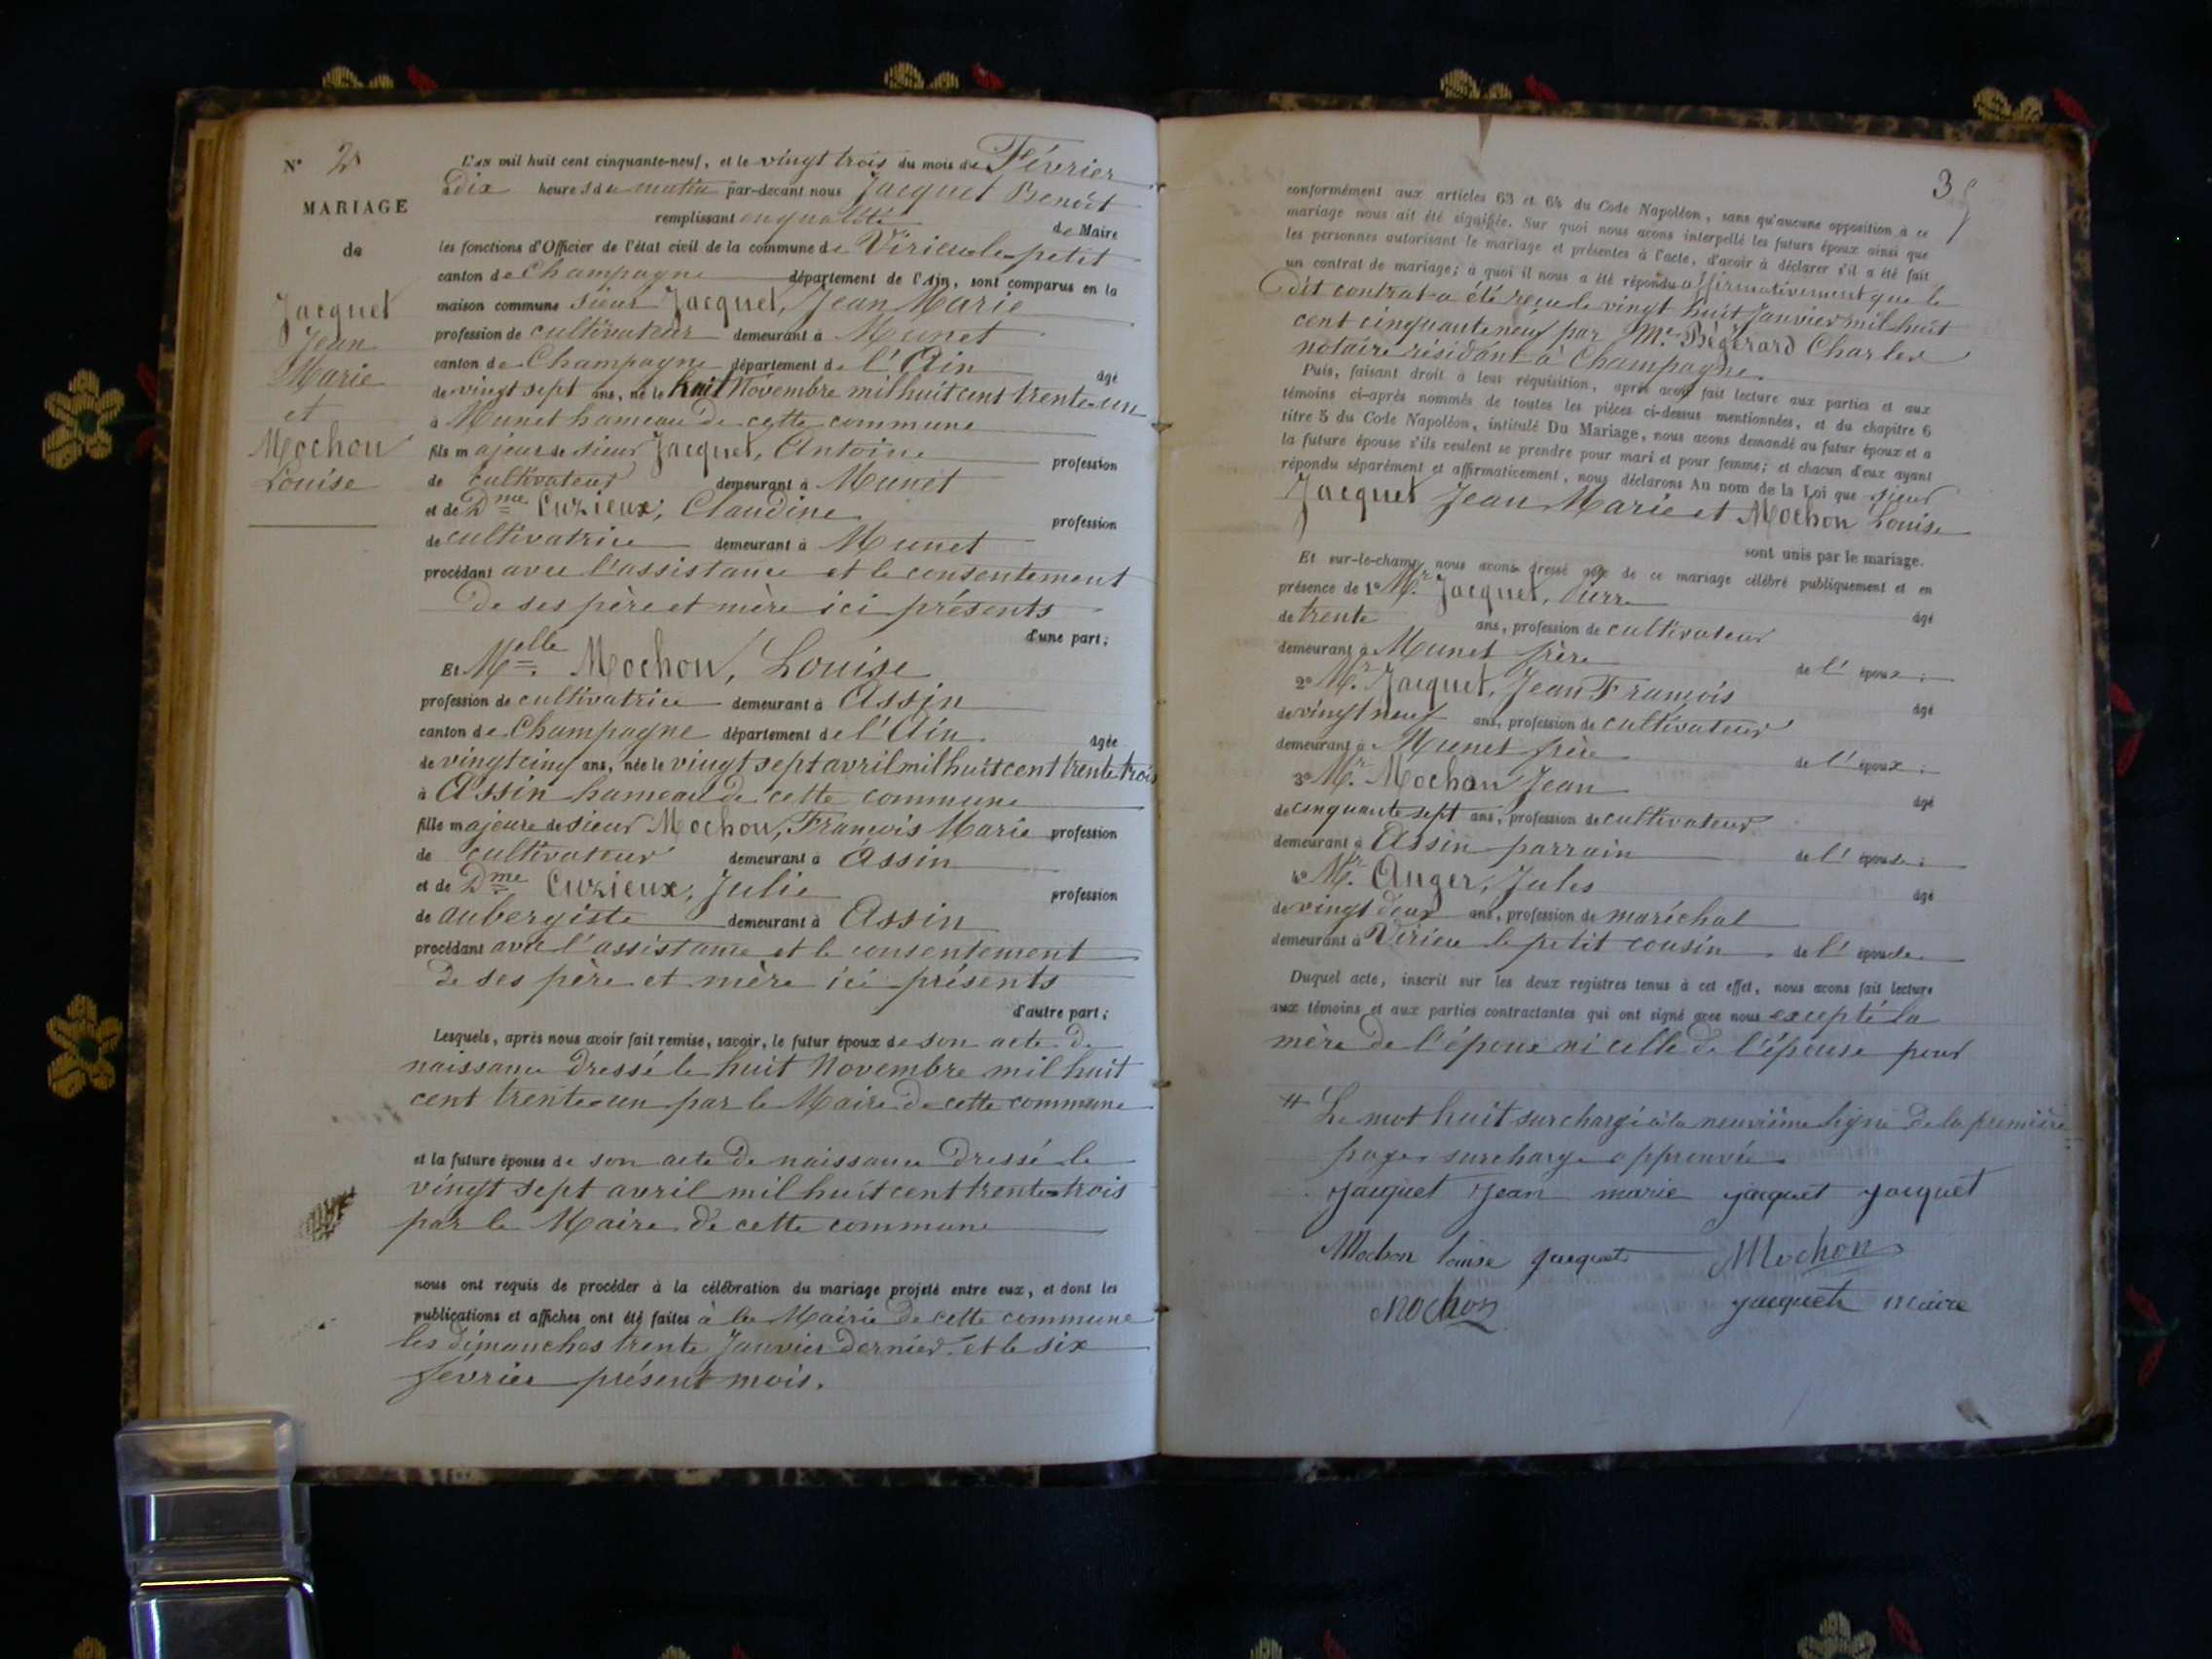 N° 2
MARIAGE
de
Jacquet
Jean
Marie
et
Mochon
Louise
L'an mil huit cent cinquante-neuf, et le vingt trois du mois de Février
à dix heures du matin par-devant nous Jacquet Benoit
remplissant en qualité de Maire
les fonctions d'Officier de l'état civil de la commune de Virieu le petit
canton de Champagne département de l'Ain, sont comparus en la
maison commune sieur Jacquet, Jean Marie
profession de cultivateur demeurant à Munet
canton de Champagne département de l'Ain âgé
de vingt sept ans, né le huit Novembre mil huit cent trente un
à Munet hameau de cette commune
fils majeur de sieur Jacquet, Antoine profession
de cultivateur demeurant à Munet
et de Dme Cuzieux, Claudine profession
de cultivatrice demeurant à Munet
procédant avec l'assistance et le consentement
de ses père et mère ici présents
d'une part;
Et Melle Mochon, Louise
profession de cultivatrice demeurant à Assin
canton de Champagne département de l'Ain. âgée
de vingt cinq ans, née le vingt sept avril mil huit cent trente trois
à Assin hameau de cette commune
fille majeure de sieur Mochon, François Marie profession
de cultivateur demeurant à Assin
et de Dme Cuzieux, Julie profession
de aubergiste demeurant à Assin
procédant avec l'assistance et le consentement
de ses père et mère ici présents
d'autre part;
Lesquels, après nous avoir fait remise, savoir, le futur époux de son acte de
naissance dressé le huit Novembre mil huit
cent trente un par le Maire de cette commune
et la future épouse de son acte de naissance dressé le
vingt sept avril mil huit cent trente trois
par le Maire de cette commune
nous ont requis de procéder à la célébration du mariage projeté entre eux, et dont les
publications et affiches ont été faites à la Mairie de cette commune
les dimanches trente Janvier dernier et le six
février présent mois.
3
conformément aux articles 63 et 64 du Code Napoléon, sans qu'aucune opposition à ce
mariage nous ait été signifiée. Sur quoi nous avons interpellé les futurs époux ainsi que
les personnes autorisant le mariage et présentes à l'acte, d'avoir à déclarer s'il a été fait
un contrat de mariage; à quoi il nous a été répondu affirmativement que le
dit contrat a été reçu le vingt huit Janvier mil huit
cent cinquante neuf par Me Bégerard Charles
notaire résidant à Champagne.
Puis, faisant droit à leur réquisition, après avoir fait lecture aux parties et aux
témoins ci-après nommés de toutes les pièces ci-dessus mentionnées, et du chapitre 6
titre 5 du Code Napoléon, intitulé Du Mariage, nous avons demandé au futur époux et a
la future épouse s'ils veulent se prendre pour mari et pour femme; et chacun d'eux ayant
répondu séparément et affirmativement, nous déclarons Au nom de la Loi que sieur
Jacquet Jean Marie et Mochon Louise
sont unis par le mariage.
Et sur-le-champ nous avons dressé acte de ce mariage célébré publiquement et en
présence de 1° Mr. Jacquet, Pierre
âgé
de trente ans, profession de cultivateur
demeurant à Munet frère de l'époux;
2° Mr. Jacquet, Jean François
âgé
de vingt neuf ans, profession de cultivateur
demeurant à Munet frère de l'époux;
3° Mr. Mochon Jean
âgé
de cinquante sept ans, profession de cultivateur
demeurant à Assin parrain de l'épouse;
4° Mr. Anger, Jules
âgé
de vingt deux ans, profession de maréchal
demeurant à Virieu le petit cousin de l'épouse
Duquel acte, inscrit sur les deux registres tenus à cet effet, nous avons fait lecture
aux témoins et aux parties contractantes qui ont signé avec nous excepté la
mère de l'époux ni celle de l'épouse pour
# Le mot huit surchargé à la neuvième ligne de la première
page surcharge approuvée
Jacquet Jean marie jacquet jacquet
Mochon louise jacquet Mochon
Mochon jacquet maire